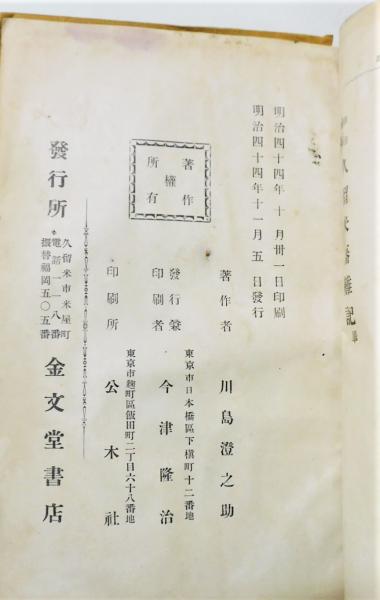 明治四十四年十月卅一日印刷
明治四十四年十一月五日發行
著作者　川島澄之助
東京市日本橋區下槇町十二番地
發行兼
印刷者　今津隆治
東京市麴町區飯田町二丁目六十八番地
印刷所　公木社
著作
權
所有
發行所
久留米市米屋町
電話一一八番
振替福岡五〇五番
金文堂書店